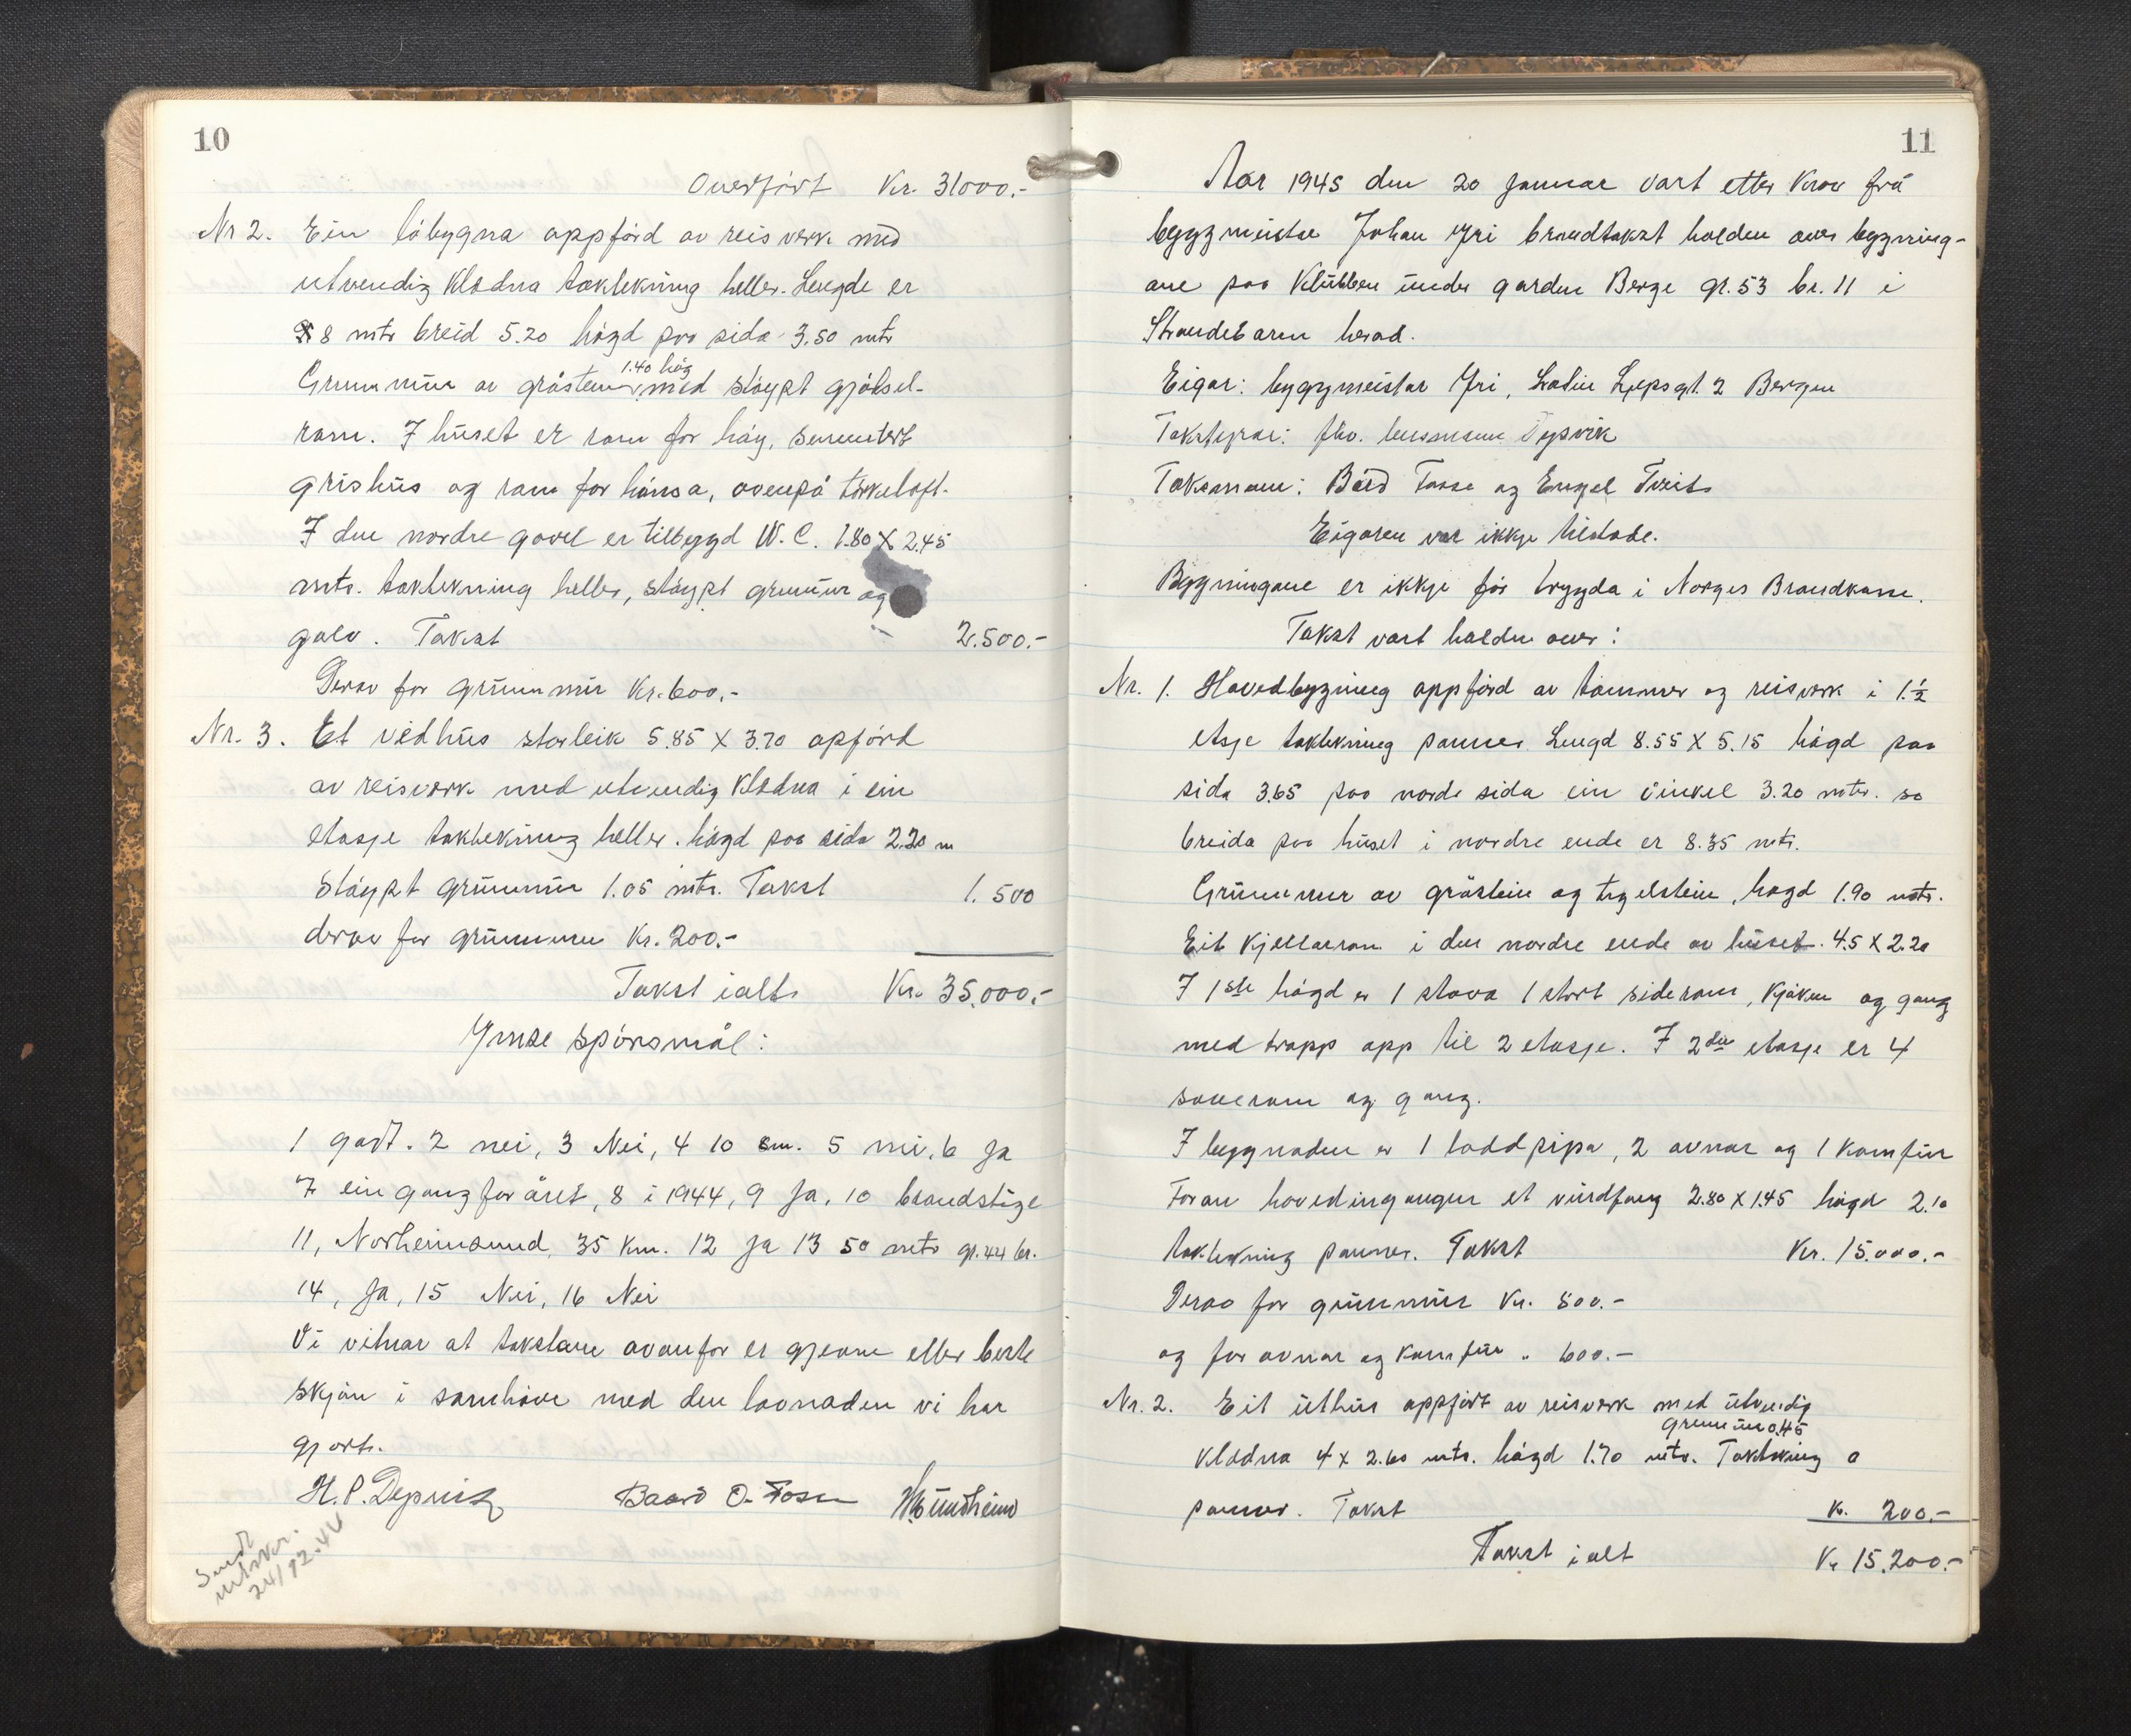 10
Overført Kr. 31000.-
Nr 2. Ein løbygna oppførd av reisverk med
utvendig Klædna taktekning heller. Lengde er
8 mtr breid 5.20 høgd paa sida 3.50 mtr
1.40 høg
Grunnmur av gråstein med støypt gjødsel-
rom. I huset er rom for høy, sementert
grishus og rom for hønsa, ovenpå tørkeloft.
I den nordre gavel er tilbygd W.C. 1.80 X 2.45
mtr. taktekning heller, støypt grunnmur og
golv. Takst 2.500.-
Derav for grunnmur Kr. 600.-
Nr. 3. Et vedhus storleik 5.85 X 3.70 opførd
av reisverk med utvendig Klædna i ein
etasje taktekning heller. høgd paa sida 2.20 m
Støypt grunnmur 1.05 mtr. Takst 1.500
derav for grunnmur Kr. 200.-
Takst ialt Kr. 35.000.-
Ymse spørsmål:
1 godt. 2 nei, 3 Nei, 4 10 cm. 5 nei, 6 Ja
7 ein gang for året, 8 i 1944, 9 Ja, 10 brandstige
11, Norheimsund, 35 Km. 12 Ja 13 50 mtr gr. 44 br.
14, Ja, 15 Nei, 16 Nei
Vi vitnar at takstane ovanfor er gjevne etter beste
skjøn i samhøve med den lovnaden vi har
gjort.
H. P. Baard O. Fosse
Sendt
utskr.
24/12-44
11
Aar 1945 den 20 Januar vart etter Krav frå
byggmeister Johan Yri brandtakst halden over bygning-
ane paa Klubben under garden Berge gr. 53 br. 11 i
Strandebarm herad.
Eigar: byggmeister Yri, Lepsgt. 2 Bergen
Takstyrar: fhv. lensmann Dysvik
Taksmenn: Bård Fosse og Engel Tveit
Eigaren var ikkje tilstade.
Bygningane er ikkje før trygda i Norges Brandkasse.
Takst vart halden over:
Nr. 1. Hovedbygning oppførd av tømmer og reisverk i 1 ½
etasje taktekning panner. Lengd 8.55 X 5.15 høgd paa
sida 3.65 paa nordre sida ein vinkel 3.20 mtr. so
breida paa huset i nordre ende er 8.35 mtr.
Grunnmur av gråstein og teglstein, høgd 1.90 mtr.
Eit Kjellarrom i den nordre ende av huset. 4.5 X 2.20
I 1ste høgd er 1 stova 1 stort siderom, Kjøken og gang
med trapp opp til 2 etasje. I 2den etasje er 4
soverom og gang.
I bygnaden er 1 loddpipa, 2 ovnar og 1 Komfur
Foran hovedingangen et vindfang 2.80 X 1.45 høgd 2.10
taktekning panner. Takst Kr. 15.000.-
Derav for grunnmur Kr. 800.-
og for ovnar og Komfur " 600.-
Nr. 2. Eit uthus oppført av reisverk med utvendig
grunnmur 0.45
Klædna 4 x 2.60 mtr. høgd 1.70 mtr. Taktekning a
panner. Takst Kr. 200.-
Takst ialt Kr 15.200.-